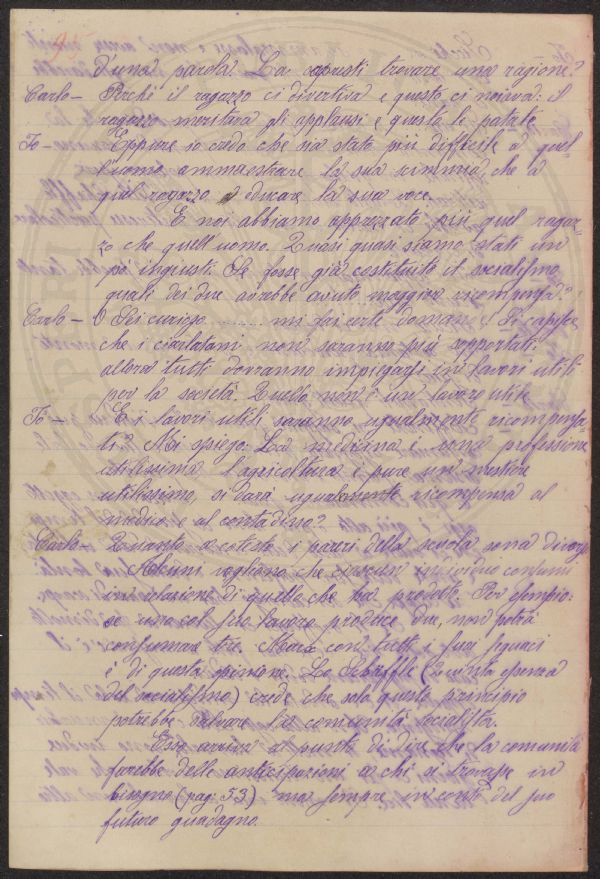 d'una parola. La sapresti trovare una ragione?
Carlo - Perchè il ragazzo ci divertiva e questo ci noiava: il
ragazzo meritava gli applausi e questo le patate
Io - Eppure io credo che sia stato più difficile a quel
l'uomo ammaestrare la sua scimmia, che a
quel ragazzo educare la sua voce.
E noi abbiamo apprezzato più quel ragaz-
zo che quell'uomo. Quasi quasi siamo stati un
po' ingiusti. Se fosse già costituito il socialismo
quali dei due avrebbe avuto maggior ricompensa?
Carlo - Sei curioso ........ mi fai certe doman Si capisce
che i ciarlatani non saranno più sopportati
allora tutti dovranno impiegarsi in lavori utili
per la società. Quello non è un lavoro utile
Io - E i lavori utili saranno ugualmente ricompensa
ti? Mi spiego: La medicina è una professione
utilissima l'agricoltura è pure un mestiere
utilissimo, si darà ugualmente ricompensa al
medico e al contadino?
Carlo - Quanto a cotesto i pareri della scuola sono diversi
Alcuni vogliono che ciascun individuo consumi
in relazione di quello che ha prodotto. Per esempio:
se uno col suo lavoro produce due, non potrà
consumar tre. Marx con tutti i suoi seguaci
è di questa opinione. Lo Schaffle (Quinta essenza
del socialismo) crede che solo questo principio
potrebbe salvare la comunità socialista.
Esso arriva al punto di dire che la comunità
farebbe delle anticipazioni a chi si trovasse in
bisogno (pag. 53) ma sempre in conto del suo
futuro guadagno.